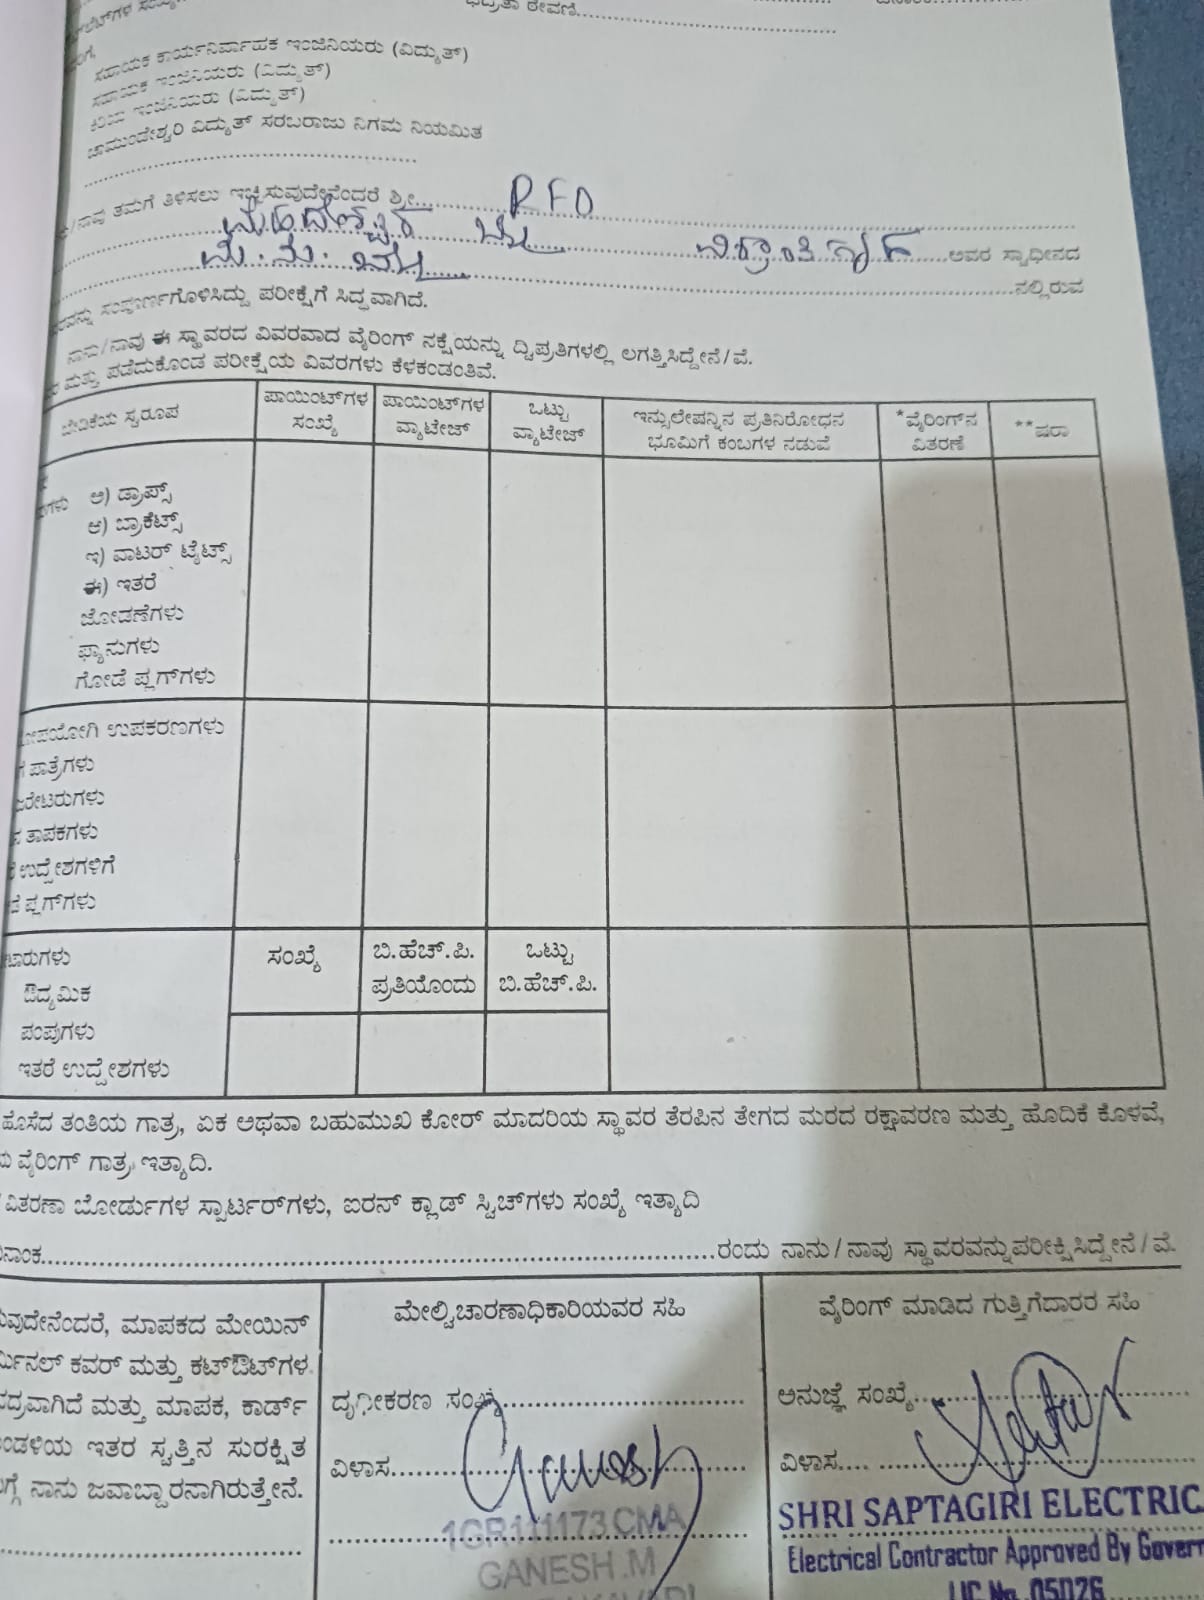 ಭದ್ರತಾ ಠೇವಣಿ
ಸಹಾಯಕ ಕಾರ್ಯನಿರ್ವಾಹಕ ಇಂಜಿನಿಯರು (ವಿದ್ಯುತ್)
ಸಹಾಯಕ ಇಂಜಿನಿಯರು (ವಿದ್ಯುತ್)
ಕಿರಿಯ ಇಂಜಿನಿಯರು (ವಿದ್ಯುತ್)
ಚಾಮುಂಡೇಶ್ವರಿ ವಿದ್ಯುತ್ ಸರಬರಾಜು ನಿಗಮ ನಿಯಮಿತ
/ನಾವು ತಮಗೆ ತಿಳಿಸಲು ಇಚ್ಛಿಸುವುದೇನೆಂದರೆ ಶ್ರೀ RFO
ವಿಶ್ರಾಂತಿಗೃಹ ಅವರ ಸ್ವಾಧೀನದ
ಮ.ಮ. ನಲ್ಲಿರುವ
ಸಂಪೂರ್ಣಗೊಳಿಸಿದ್ದು ಪರೀಕ್ಷೆಗೆ ಸಿದ್ಧವಾಗಿದೆ.
ನಾನು/ನಾವು ಈ ಸ್ಥಾವರದ ವಿವರವಾದ ವೈರಿಂಗ್ ನಕ್ಷೆಯನ್ನು ದ್ವಿಪ್ರತಿಗಳಲ್ಲಿ ಲಗತ್ತಿಸಿದ್ದೇನೆ/ವೆ.
ಮತ್ತು ಪಡೆದುಕೊಂಡ ಪರೀಕ್ಷೆಯ ವಿವರಗಳು ಕೆಳಕಂಡಂತಿವೆ.
ಸ್ವರೂಪ
ಪಾಯಿಂಟ್‌ಗಳ ಸಂಖ್ಯೆ
ಪಾಯಿಂಟ್‌ಗಳ ವ್ಯಾಟೇಜ್
ಒಟ್ಟು ವ್ಯಾಟೇಜ್
ಇನ್ಸುಲೇಷನ್ನಿನ ಪ್ರತಿನಿರೋಧನ ಭೂಮಿಗೆ ಕಂಬಗಳ ನಡುವೆ
*ವೈರಿಂಗ್‌ನ ವಿತರಣೆ
**ಷರಾ
ಅ) ಡ್ರಾಪ್ಸ್
ಆ) ಬ್ರಾಕೆಟ್ಸ್
ಇ) ವಾಟರ್ ಟೈಟ್ಸ್
ಈ) ಇತರೆ
ಜೋಡಣೆಗಳು
ಫ್ಯಾನುಗಳು
ಗೋಡೆ ಪ್ಲಗ್‌ಗಳು
ಉಪಕರಣಗಳು
ಪಾತ್ರೆಗಳು
ತಾಪಕಗಳು
ಉದ್ದೇಶಗಳಿಗೆ
ಪ್ಲಗ್‌ಗಳು
ಸಂಖ್ಯೆ
ಬಿ.ಹೆಚ್.ಪಿ. ಪ್ರತಿಯೊಂದು
ಒಟ್ಟು ಬಿ.ಹೆಚ್.ಪಿ.
ಔದ್ಯಮಿಕ
ಪಂಪುಗಳು
ಇತರೆ ಉದ್ದೇಶಗಳು
ಹೊಸೆದ ತಂತಿಯ ಗಾತ್ರ, ಏಕ ಅಥವಾ ಬಹುಮುಖ ಕೋರ್ ಮಾದರಿಯ ಸ್ಥಾವರ ತೆರಪಿನ ತೇಗದ ಮರದ ರಕ್ಷಾವರಣ ಮತ್ತು ಹೊದಿಕೆ ಕೊಳವೆ,
ವೈರಿಂಗ್ ಗಾತ್ರ ಇತ್ಯಾದಿ.
ವಿತರಣಾ ಬೋರ್ಡುಗಳ ಸ್ಟಾರ್ಟರ್‌ಗಳು, ಐರನ್ ಕ್ಲಾಡ್ ಸ್ವಿಚ್‌ಗಳು ಸಂಖ್ಯೆ ಇತ್ಯಾದಿ
ರಂದು ನಾನು/ನಾವು ಸ್ಥಾವರವನ್ನುಪರೀಕ್ಷಿಸಿದ್ದೇನೆ/ವೆ.
ಮಾಪಕದ ಮೇಯಿನ್
ಕವರ್ ಮತ್ತು ಕಟ್‌ಔಟ್‌ಗಳ
ಮತ್ತು ಮಾಪಕ, ಕಾರ್ಡ್
ಇತರ ಸ್ವತ್ತಿನ ಸುರಕ್ಷಿತ
ನಾನು ಜವಾಬ್ದಾರನಾಗಿರುತ್ತೇನೆ.
ಮೇಲ್ವಿಚಾರಣಾಧಿಕಾರಿಯವರ ಸಹಿ
ದೃಢೀಕರಣ ಸಂಖ್ಯೆ
ವಿಳಾಸ Ganesh
1GR111173 CMA
GANESH.M
ವೈರಿಂಗ್ ಮಾಡಿದ ಗುತ್ತಿಗೆದಾರರ ಸಹಿ
ಅನುಜ್ಞೆ ಸಂಖ್ಯೆ
ವಿಳಾಸ
SHRI SAPTAGIRI ELECTRIC
Electrical Contractor Approved By Govern
LIC No. 05026